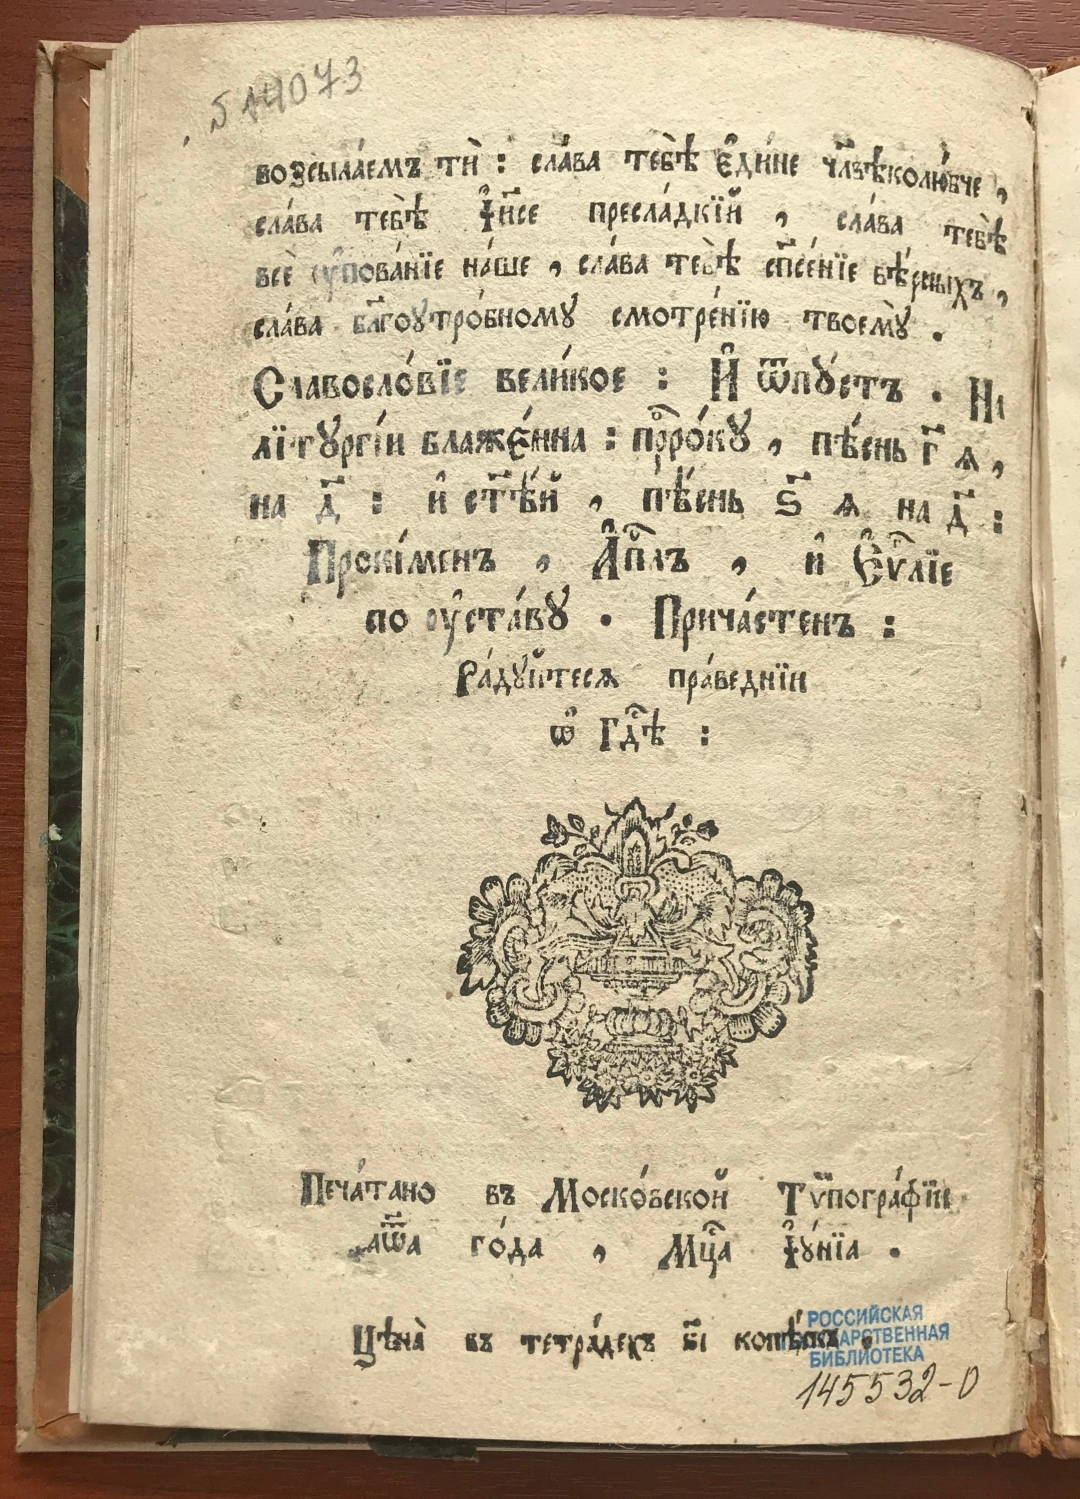 Б 14073
возсыла́емъ тѝ : сла́ва тебѣ̀ є҆ди́не чл҃вѣколю́бче ,
сла́ва тебѣ̀ і҆и҃се пресла́дкїй , сла́ва тебѣ̀
всѐ ᲂу҆пова́нїе на́ше , сла́ва тебѣ̀ сп҃се́нїе вѣ́рныхъ ,
сла́ва бл҃гоутро́бному смотре́нїю твоемꙋ̀ .
Славосло́вїе вели́кое : И҆ ѿпꙋ́стъ . На
лїтꙋргі́и блаже́нна : прⷪ҇ро́кꙋ , пѣ́снь г҃ ѧ ,
на д҃ : и҆ ст҃ѣ́й , пѣ́снь ѕ҃ ѧ на д҃ :
Прокі́менъ , А҆пⷭ҇лъ , и҆ Є҆ѵⷢ҇лїе
по ᲂу҆ста́вꙋ . Прича́стенъ :
Ра́дꙋйтесѧ пра́веднїи
ѡ҆ Гдⷭ҇ѣ :
Печа́тано въ Моско́вской Тѷпогра́фїи
҂аѿ҃а го́да , Мцⷭ҇а І҆ꙋ́нїа .
Цѣна̀ въ тетра́дехъ в҃і копѣ́екъ .
РОССИЙСКАЯ
ГОСУДАРСТВЕННАЯ
БИБЛИОТЕКА
145532-0